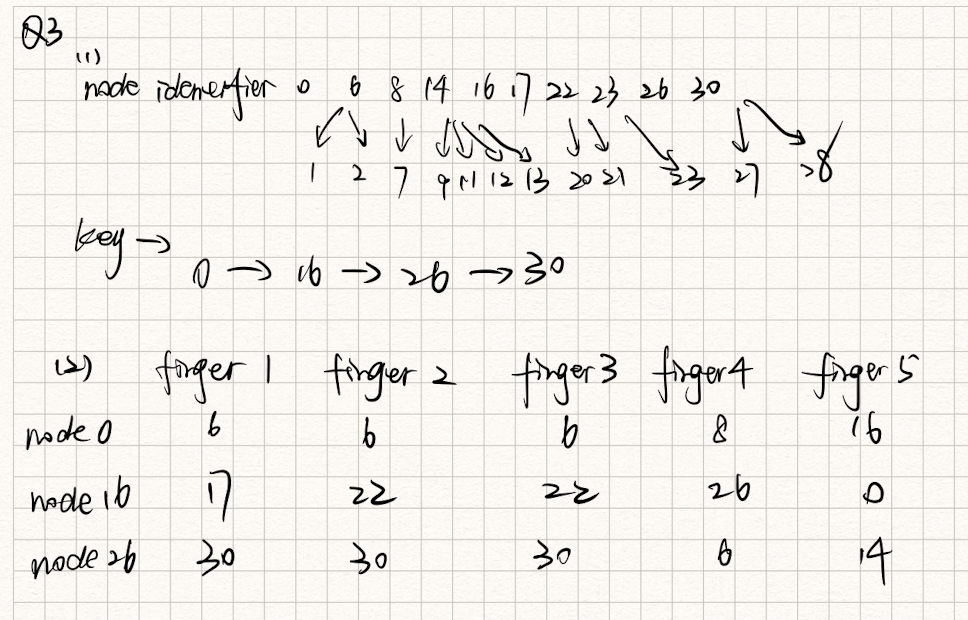 Q3
(1)
node idenerfier 0 6 8 14 16 17 22 23 26 30
1 2 7 9 11 12 13 20 21 23 27 28
key →
0 → 16 → 26 → 30
(2) finger 1 finger 2 finger 3 finger 4 finger 5
node 0 6 6 6 8 16
node 16 17 22 22 26 0
node 26 30 30 30 6 14